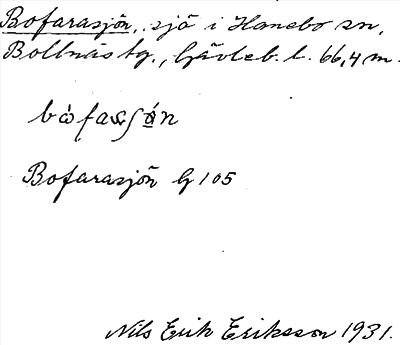 Bofarasjön, sjö i Hanebo sn,
Bollnäs tg., Gävleb. l. 66,4 m.
Bofarasjön G 105
Nils Erik Eriksson 1931.